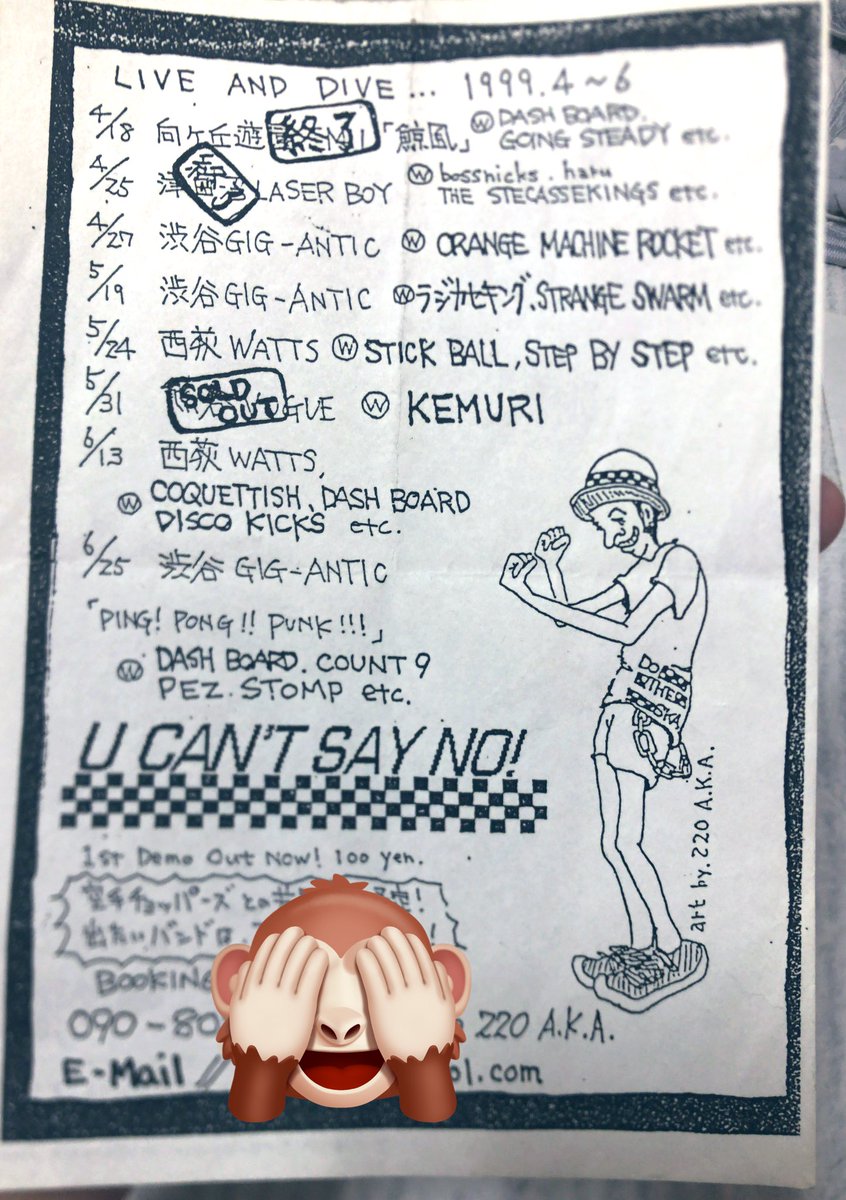 LIVE AND DIVE... 1999.4～6
4/18 向ヶ丘遊 終了 「鯨風」 Ⓦ DASH BOARD.
GOING STEADY etc.
4/25 津 LASER BOY Ⓦ bossnicks. haru
THE STECASSEKINGS etc.
4/27 渋谷GIG-ANTIC Ⓦ ORANGE MACHINE ROCKET etc.
5/19 渋谷GIG-ANTIC Ⓦラジカセキング、STRANGE SWARM etc.
5/24 西荻WATTS Ⓦ STICK BALL, STEP BY STEP etc.
5/31 SOLD OUT GUE Ⓦ KEMURI
6/13 西荻WATTS,
Ⓦ COQUETTISH、DASH BOARD
DISCO KICKS etc.
6/25 渋谷 GIG-ANTIC
「PING! PONG!! PUNK!!!」
Ⓦ DASH BOARD. COUNT 9
PEZ. STOMP etc.
DO
THE
SKA
U CAN'T SAY NO!
1st Demo Out Now! 100 yen.
空手チョッパーズとの
出たいバンドは
BOOKING
090-80 220 A.K.A.
E-Mail // ol.com
art by. 220 A.K.A.